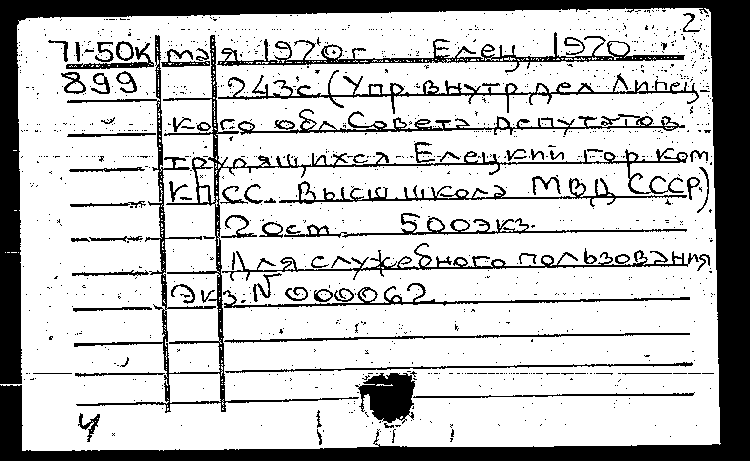 2
71-50к мая 1970г Елец, 1970
899 243с. (Упр. внутр дел Липец-
кого обл. Совета депутатов
трудящихся Елецкий гор. ком
КПСС. Высш. школа МВД СССР)
20см. 500экз.
Для служебного пользования
Экз. N 000062.
4